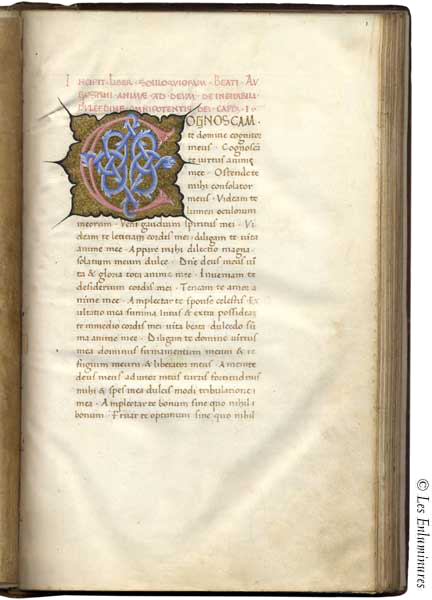 INCIPIT · LIBER · SOLILOQVIORVM · BEATI · AV
GVSTINI · ANIMAE · AD DEVM · DE INEFABILI
DVLCEDINE · OMNIPOTENTIS · DEI · CAPVT · I ·
COGNOSCAM
te domine cognitor
meus · Cognoscā
te virtus anime
mee · Ostende te
mihi consolator
meus · Videam te
lumen oculorum
meorum · Veni gaudium spiritus mei · Vi
deam te letitiam cordis mei · diligam te vita
anime mee · Appare mihi dilectio magna ·
solatium meum dulce · Dn̄e deus meus vi
ta & gloria tota anime mee · Inveniam te
desiderium cordis mei · Teneam te amor a
nime mee · Amplectar te sponse celestis · Ex
ultatio mea summa intus & extra possidea
te in medio cordis mei vita beata · dulcedo sū
ma anime mee · Diligam te domine virtus
mea dominus firmamentum meum & re
fugium meum & liberator meus · Amem te
deus meus adiutor meus turris fortitudinis
mihi & spes mea dulcis in omni tribulatione
mea · Amplectar te bonum sine quo nihil
bonum · Fruar te optimum sine quo nihil
© Les Enluminures